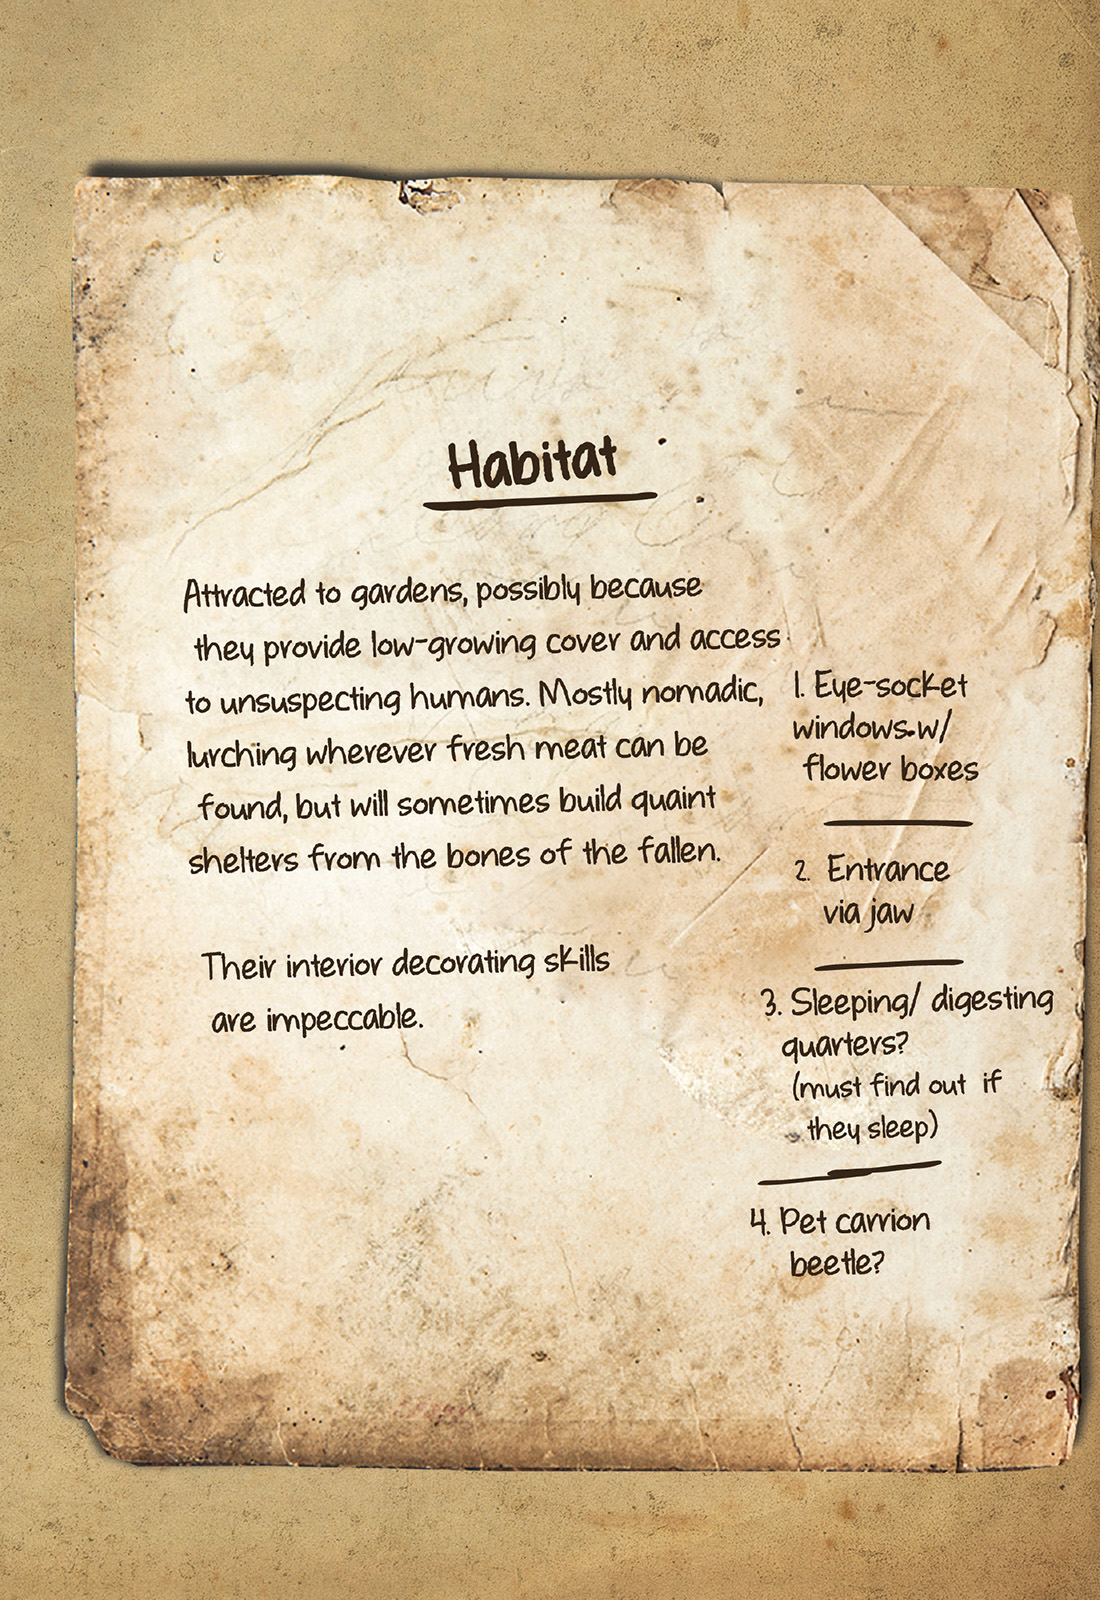 Habitat
Attracted to gardens, possibly because
they provide low-growing cover and access
to unsuspecting humans. Mostly nomadic,
lurching wherever fresh meat can be
found, but will sometimes build quaint
shelters from the bones of the fallen.
Their interior decorating skills
are impeccable.
1. Eye-socket
windows w/
flower boxes
2. Entrance
via jaw
3. Sleeping/ digesting
quarters?
(must find out if
they sleep)
4. Pet carrion
beetle?